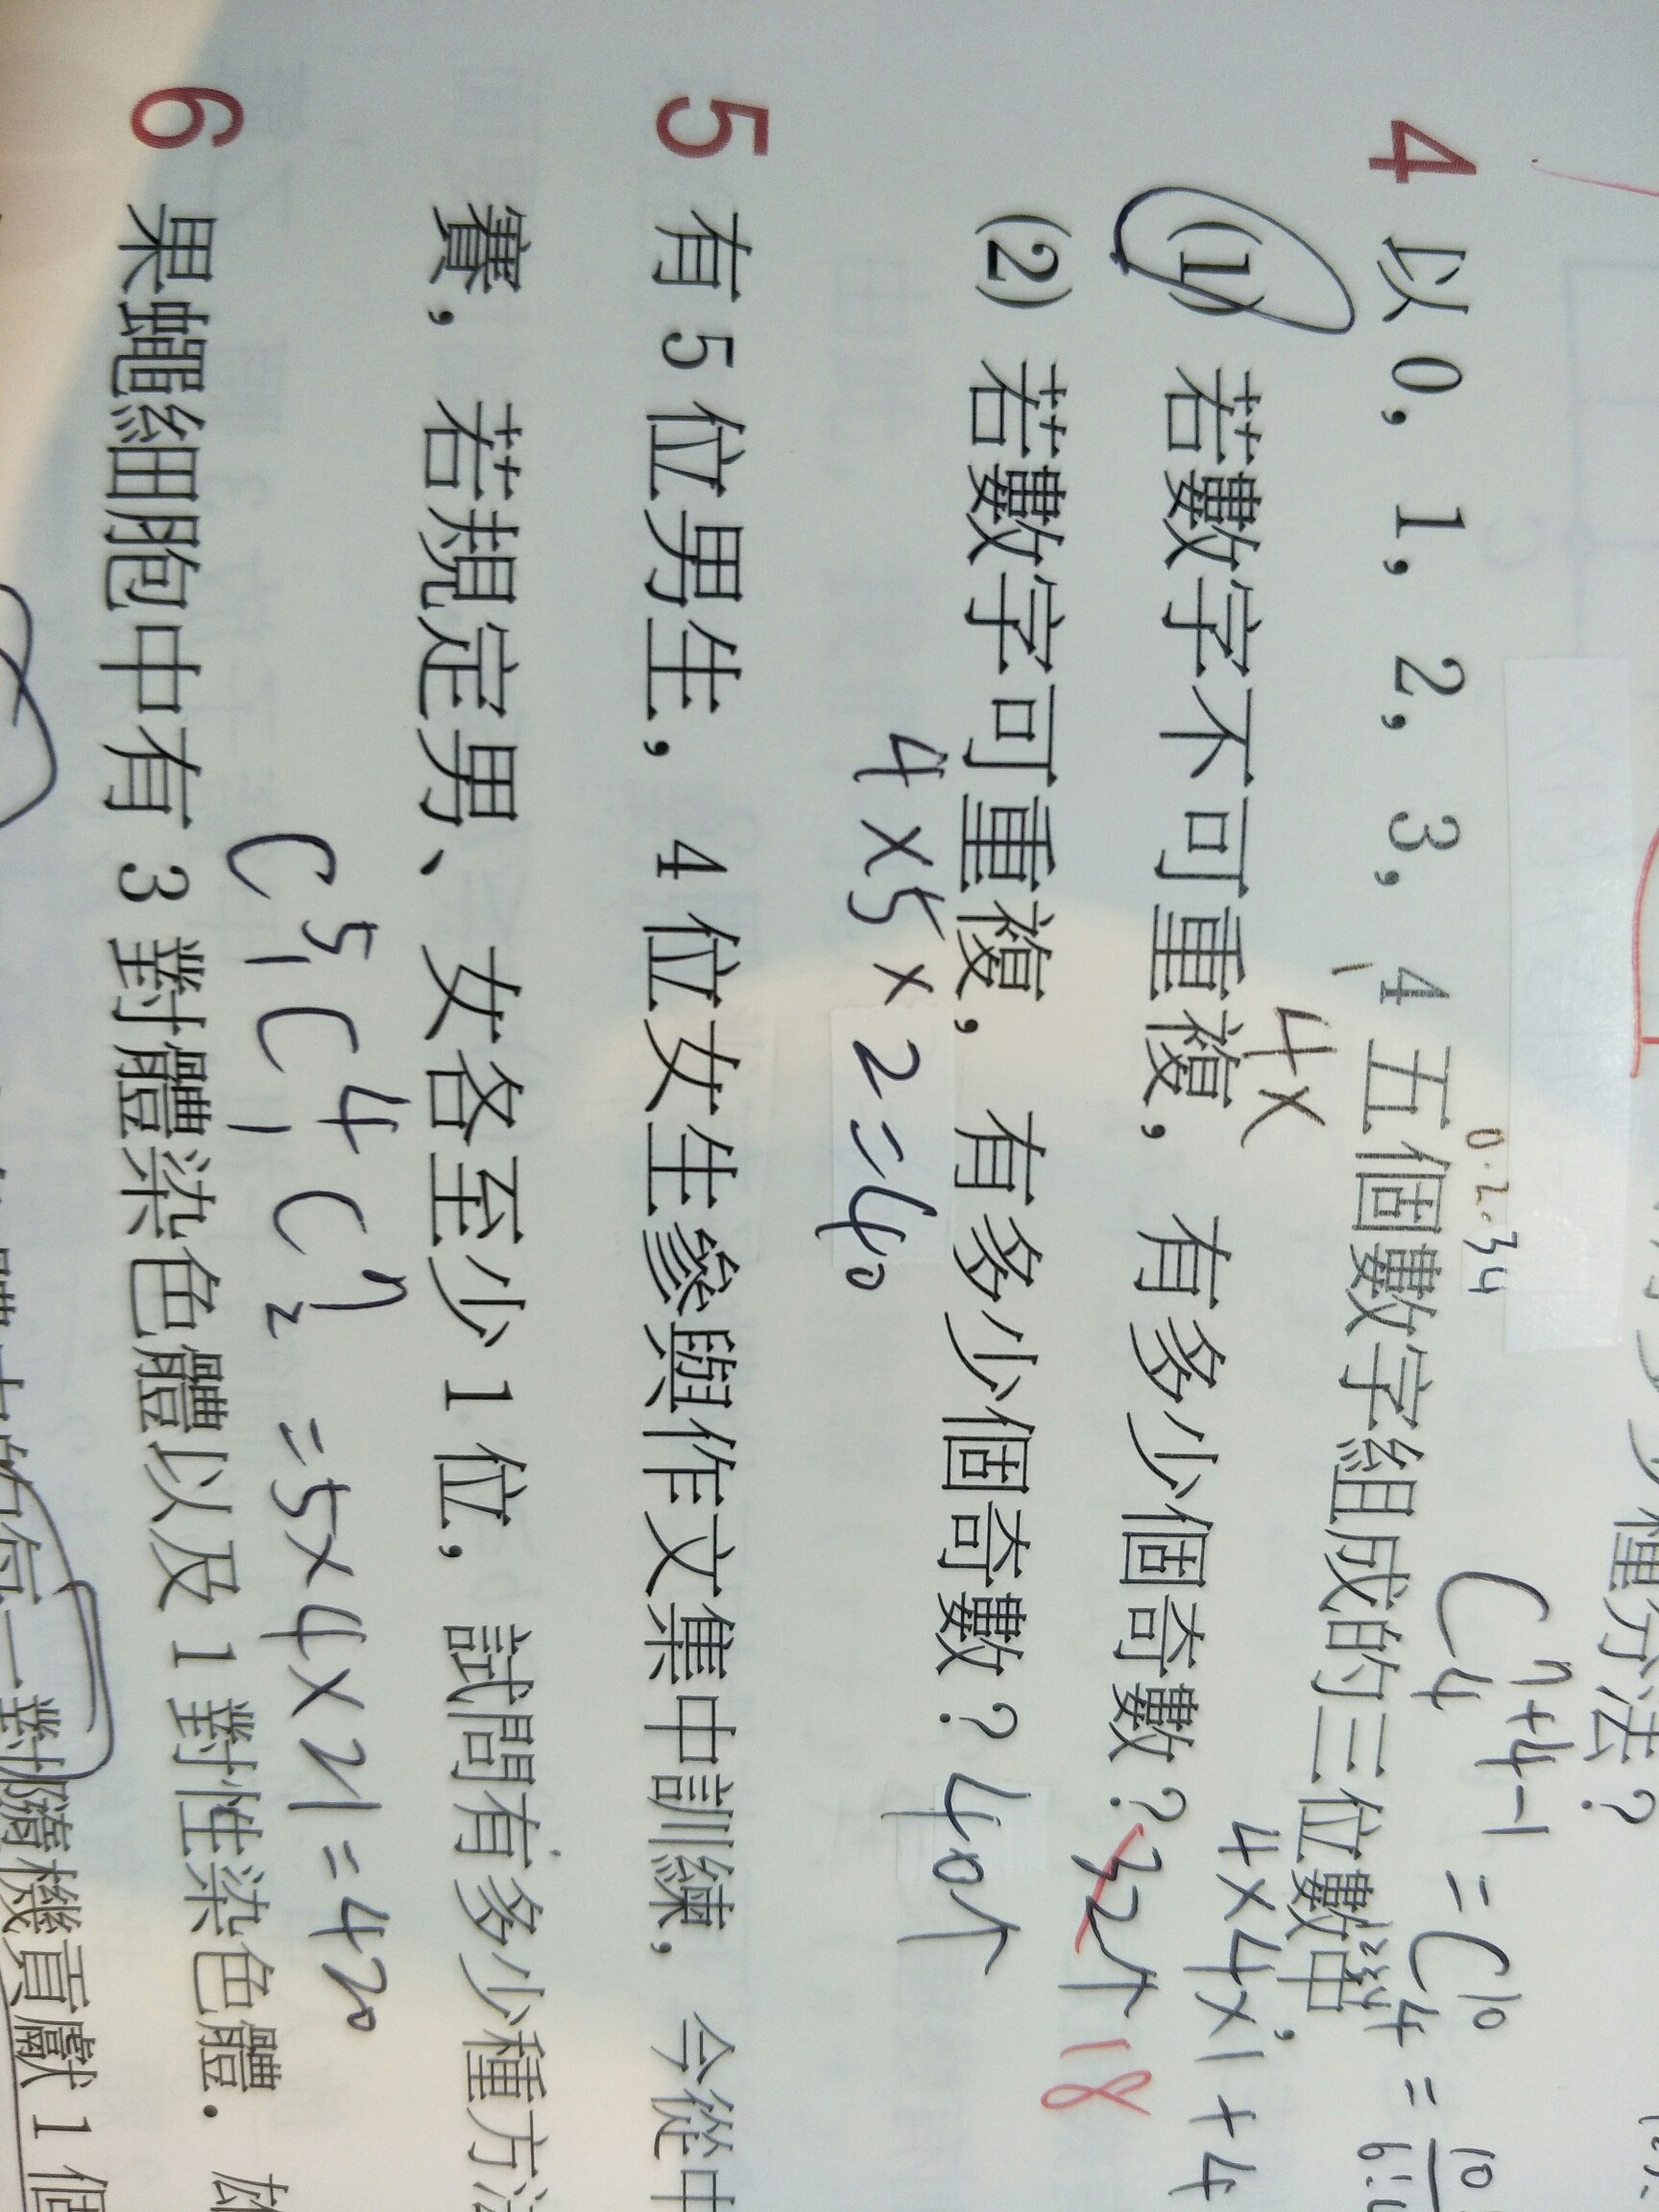 種方法？
C⁷⁺⁴⁻¹₄ = C¹⁰₄ = 10
0.2.34
4 以 0, 1, 2, 3, 4 五個數字組成的三位數中，
4×
4×4×1+4
(1) 若數字不可重複，有多少個奇數？ 32个 18
(2) 若數字可重複，有多少個奇數？ 40个
4×5×2=40
5 有 5 位男生，4 位女生參與作文集中訓練，今從中
賽，若規定男、女各至少 1 位，試問有多少種方法
C⁵₁ C⁴₁ C⁷₂ = 5×4×21=420
6 果蠅細胞中有 3 對體染色體以及 1 對性染色體．
每一對隨機貢獻 1 個